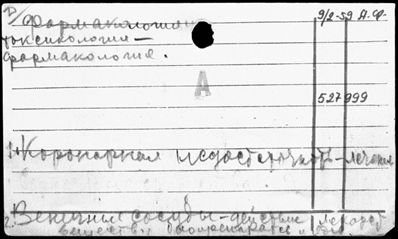 Фармакология
9/2-59 А.Ф.
токсикология —
фармакология.
А
527 999
1. Коронарная недостаточность - лечение
2. Венечные сосуды - действие лекарств
веществ,